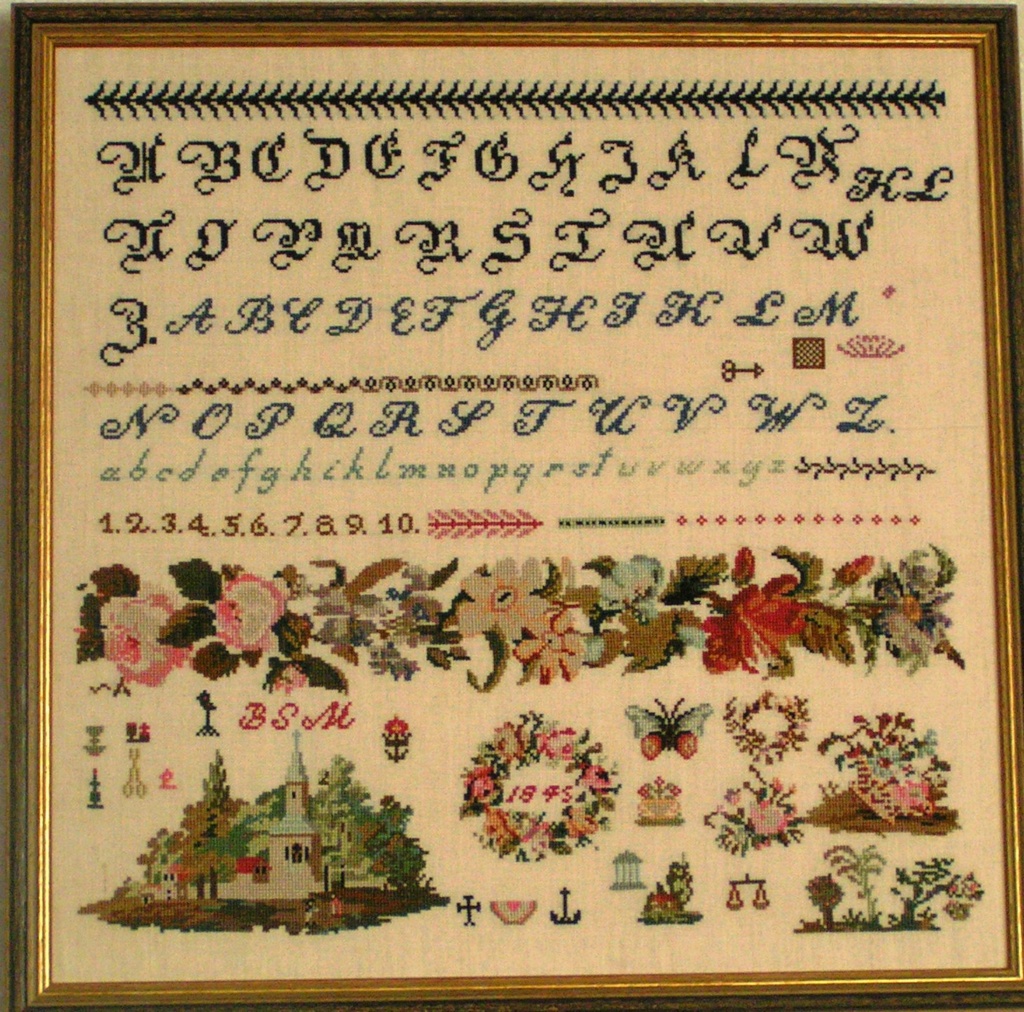 A B C D E F G H J K L M K L
N O P Q R S T U V W
Z. A B C D E F G H I K L M
N O P Q R S T U V W Z.
a b c d e f g h i k l m n o p q r s t u v w x y z
1. 2. 3. 4. 5. 6. 7. 8. 9. 10.
B S M
1845